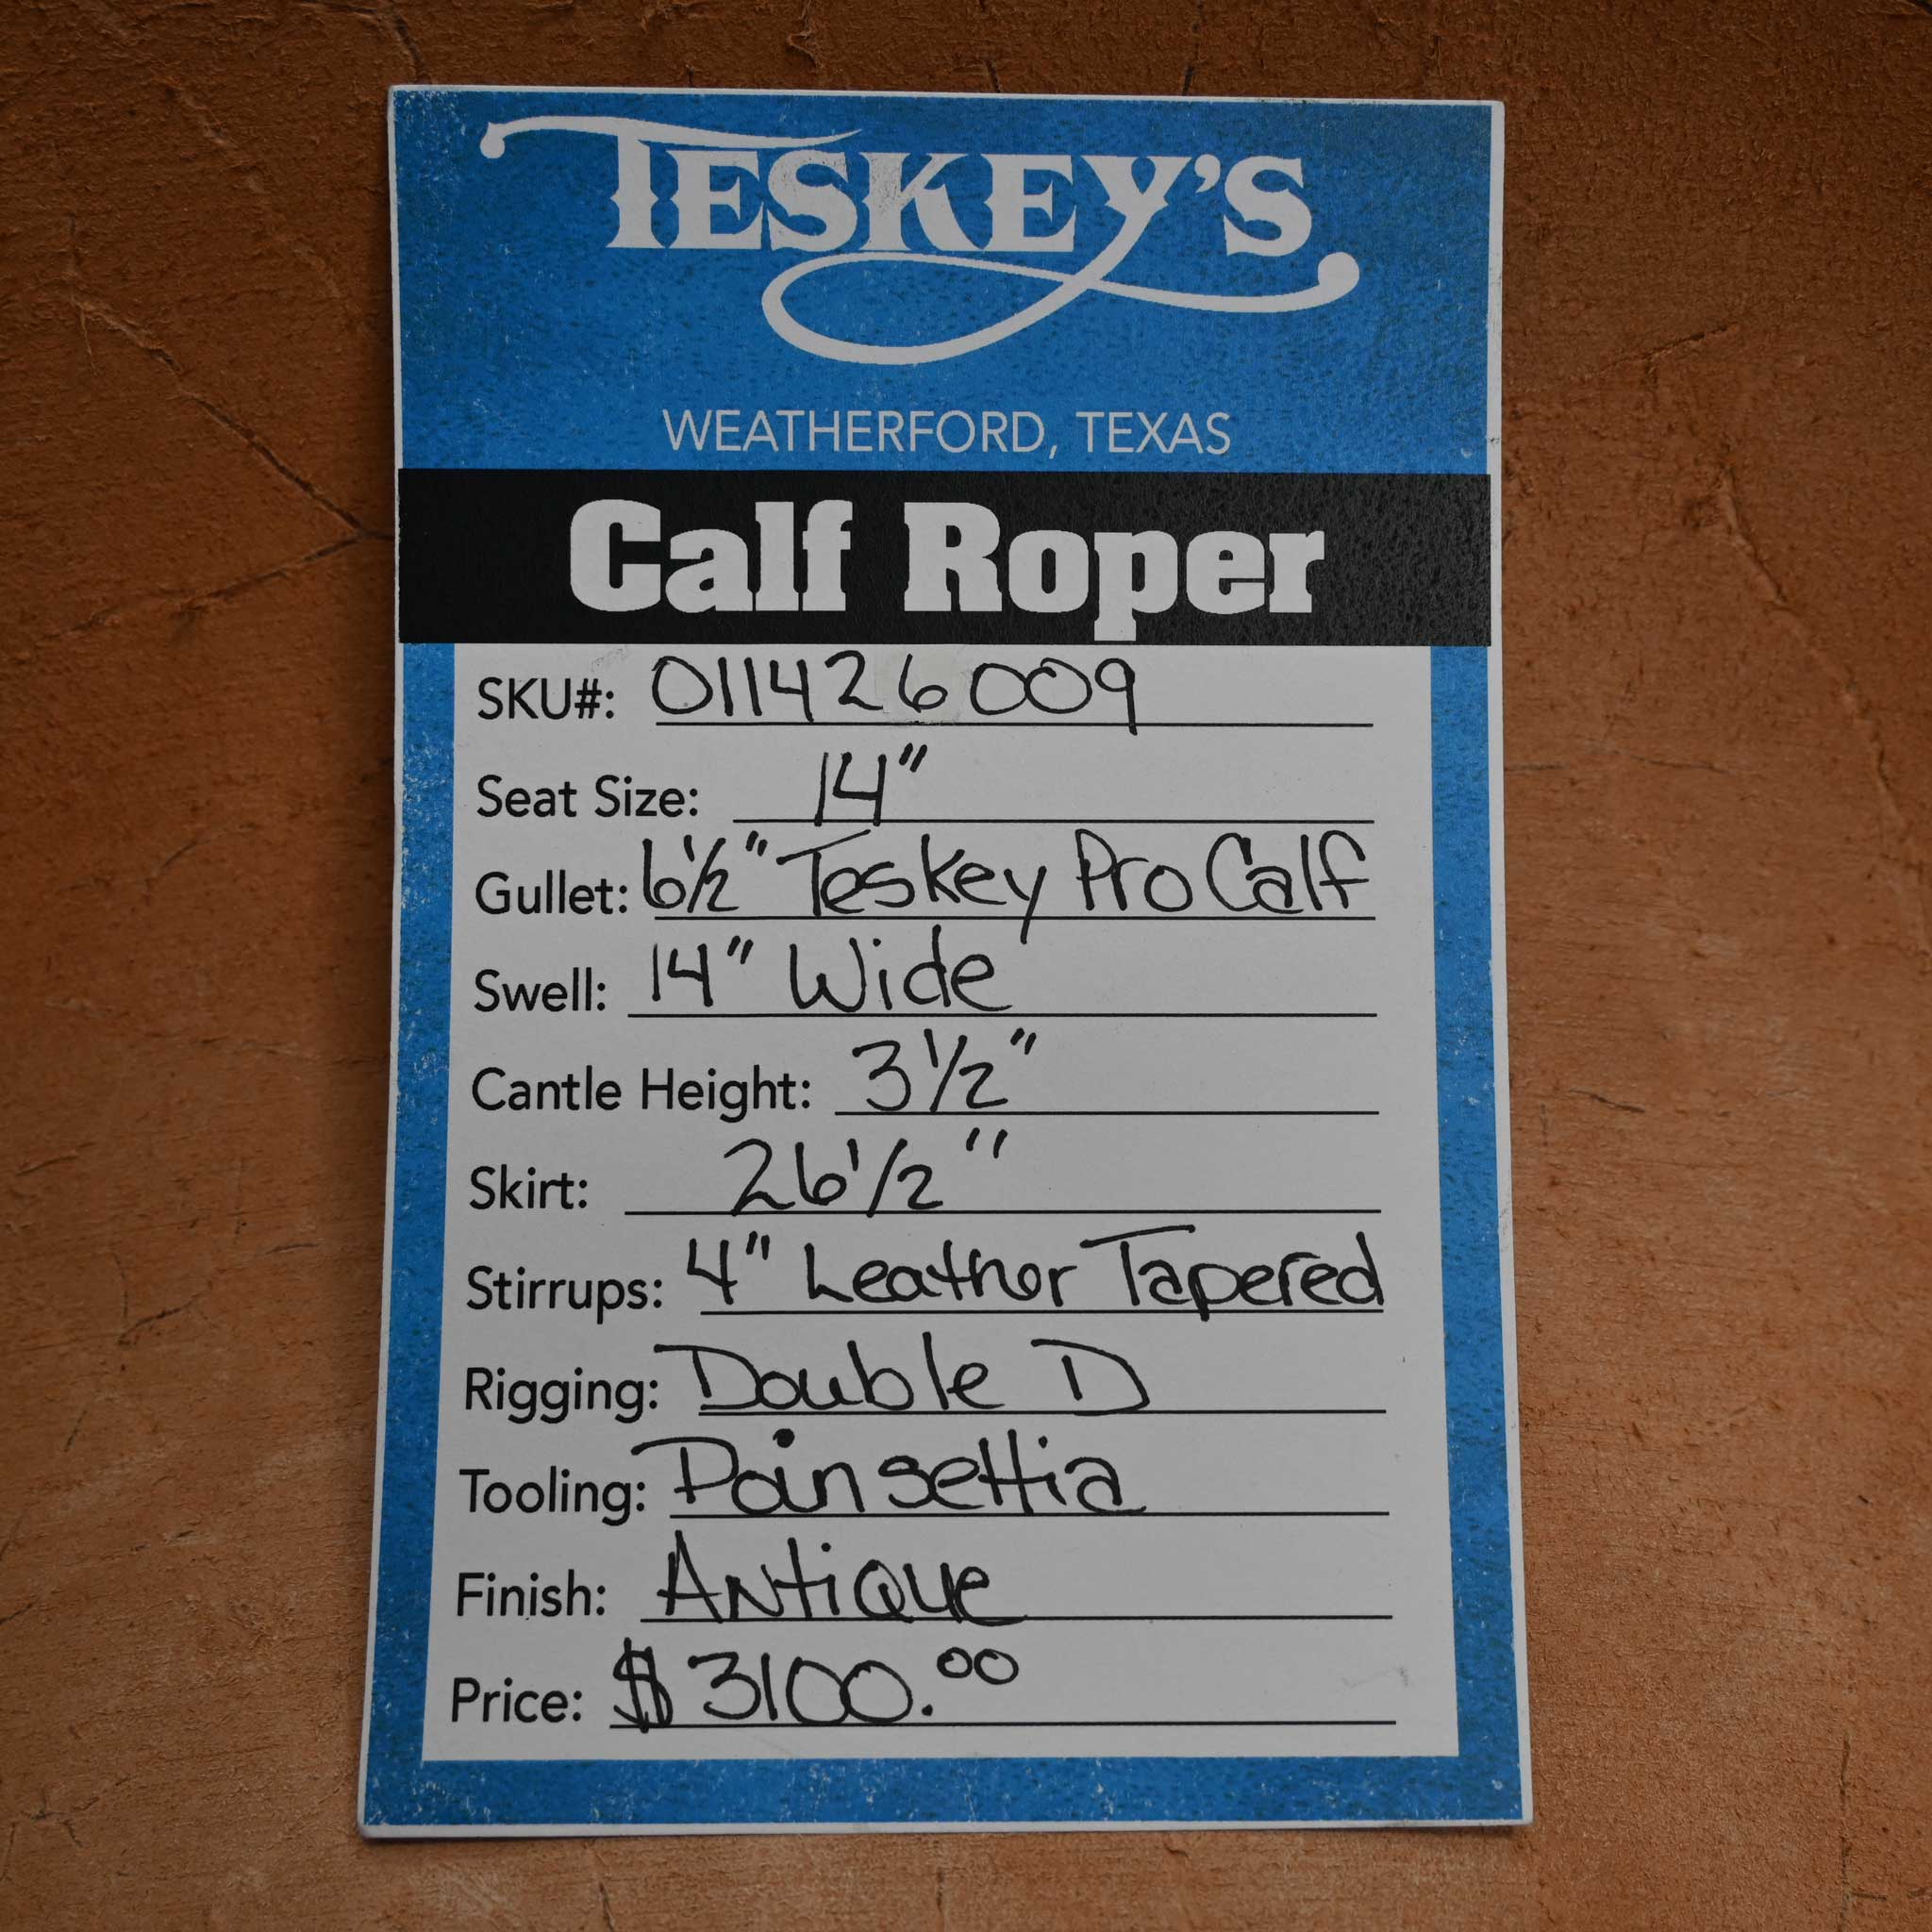 TESKEY'S
WEATHERFORD, TEXAS
Calf Roper
SKU#: 011426009
Seat Size: 14"
Gullet: 6½" Teskey Pro Calf
Swell: 14" Wide
Cantle Height: 3½"
Skirt: 26½"
Stirrups: 4" Leather Tapered
Rigging: Double D
Tooling: Poinsettia
Finish: Antique
Price: $3100.00